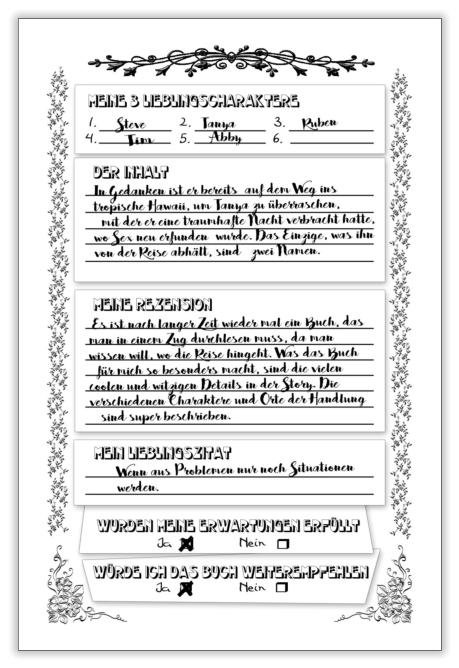 MEINE 3 LIEBLINGSCHARAKTERE
1. Steve 2. Tanya 3. Ruben
4. Tim 5. Abby 6.
DER INHALT
In Gedanken ist er bereits auf dem Weg ins
tropische Hawaii, um Tanya zu überraschen,
mit der er eine traumhafte Nacht verbracht hatte,
wo Sex neu erfunden wurde. Das Einzige, was ihn
von der Reise abhält, sind zwei Namen.
MEINE REZENSION
Es ist nach langer Zeit wieder mal ein Buch, das
man in einem Zug durchlesen muss, da man
wissen will, wo die Reise hingeht. Was das Buch
für mich so besonders macht, sind die vielen
coolen und witzigen Details in der Story. Die
verschiedenen Charaktere und Orte der Handlung
sind super beschrieben.
MEIN LIEBLINGSZITAT
Wenn aus Problemen nur noch Situationen
werden.
WURDEN MEINE ERWARTUNGEN ERFÜLLT
Ja Nein
WÜRDE ICH DAS BUCH WEITEREMPFEHLEN
Ja Nein